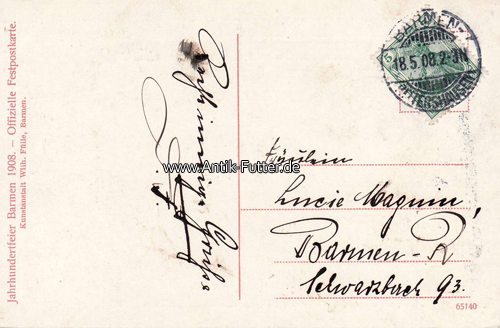 Jahrhundertfeier Barmen 1908. – Offizielle Festpostkarte.
Kunstanstalt Wilh. Fülle, Barmen.
www.Antik-Futter.de
BARMEN
18.5.08.2-3N
5
Fräulein
Lucie Maguin
Barmen-R
Schwarzbach 93.
65140